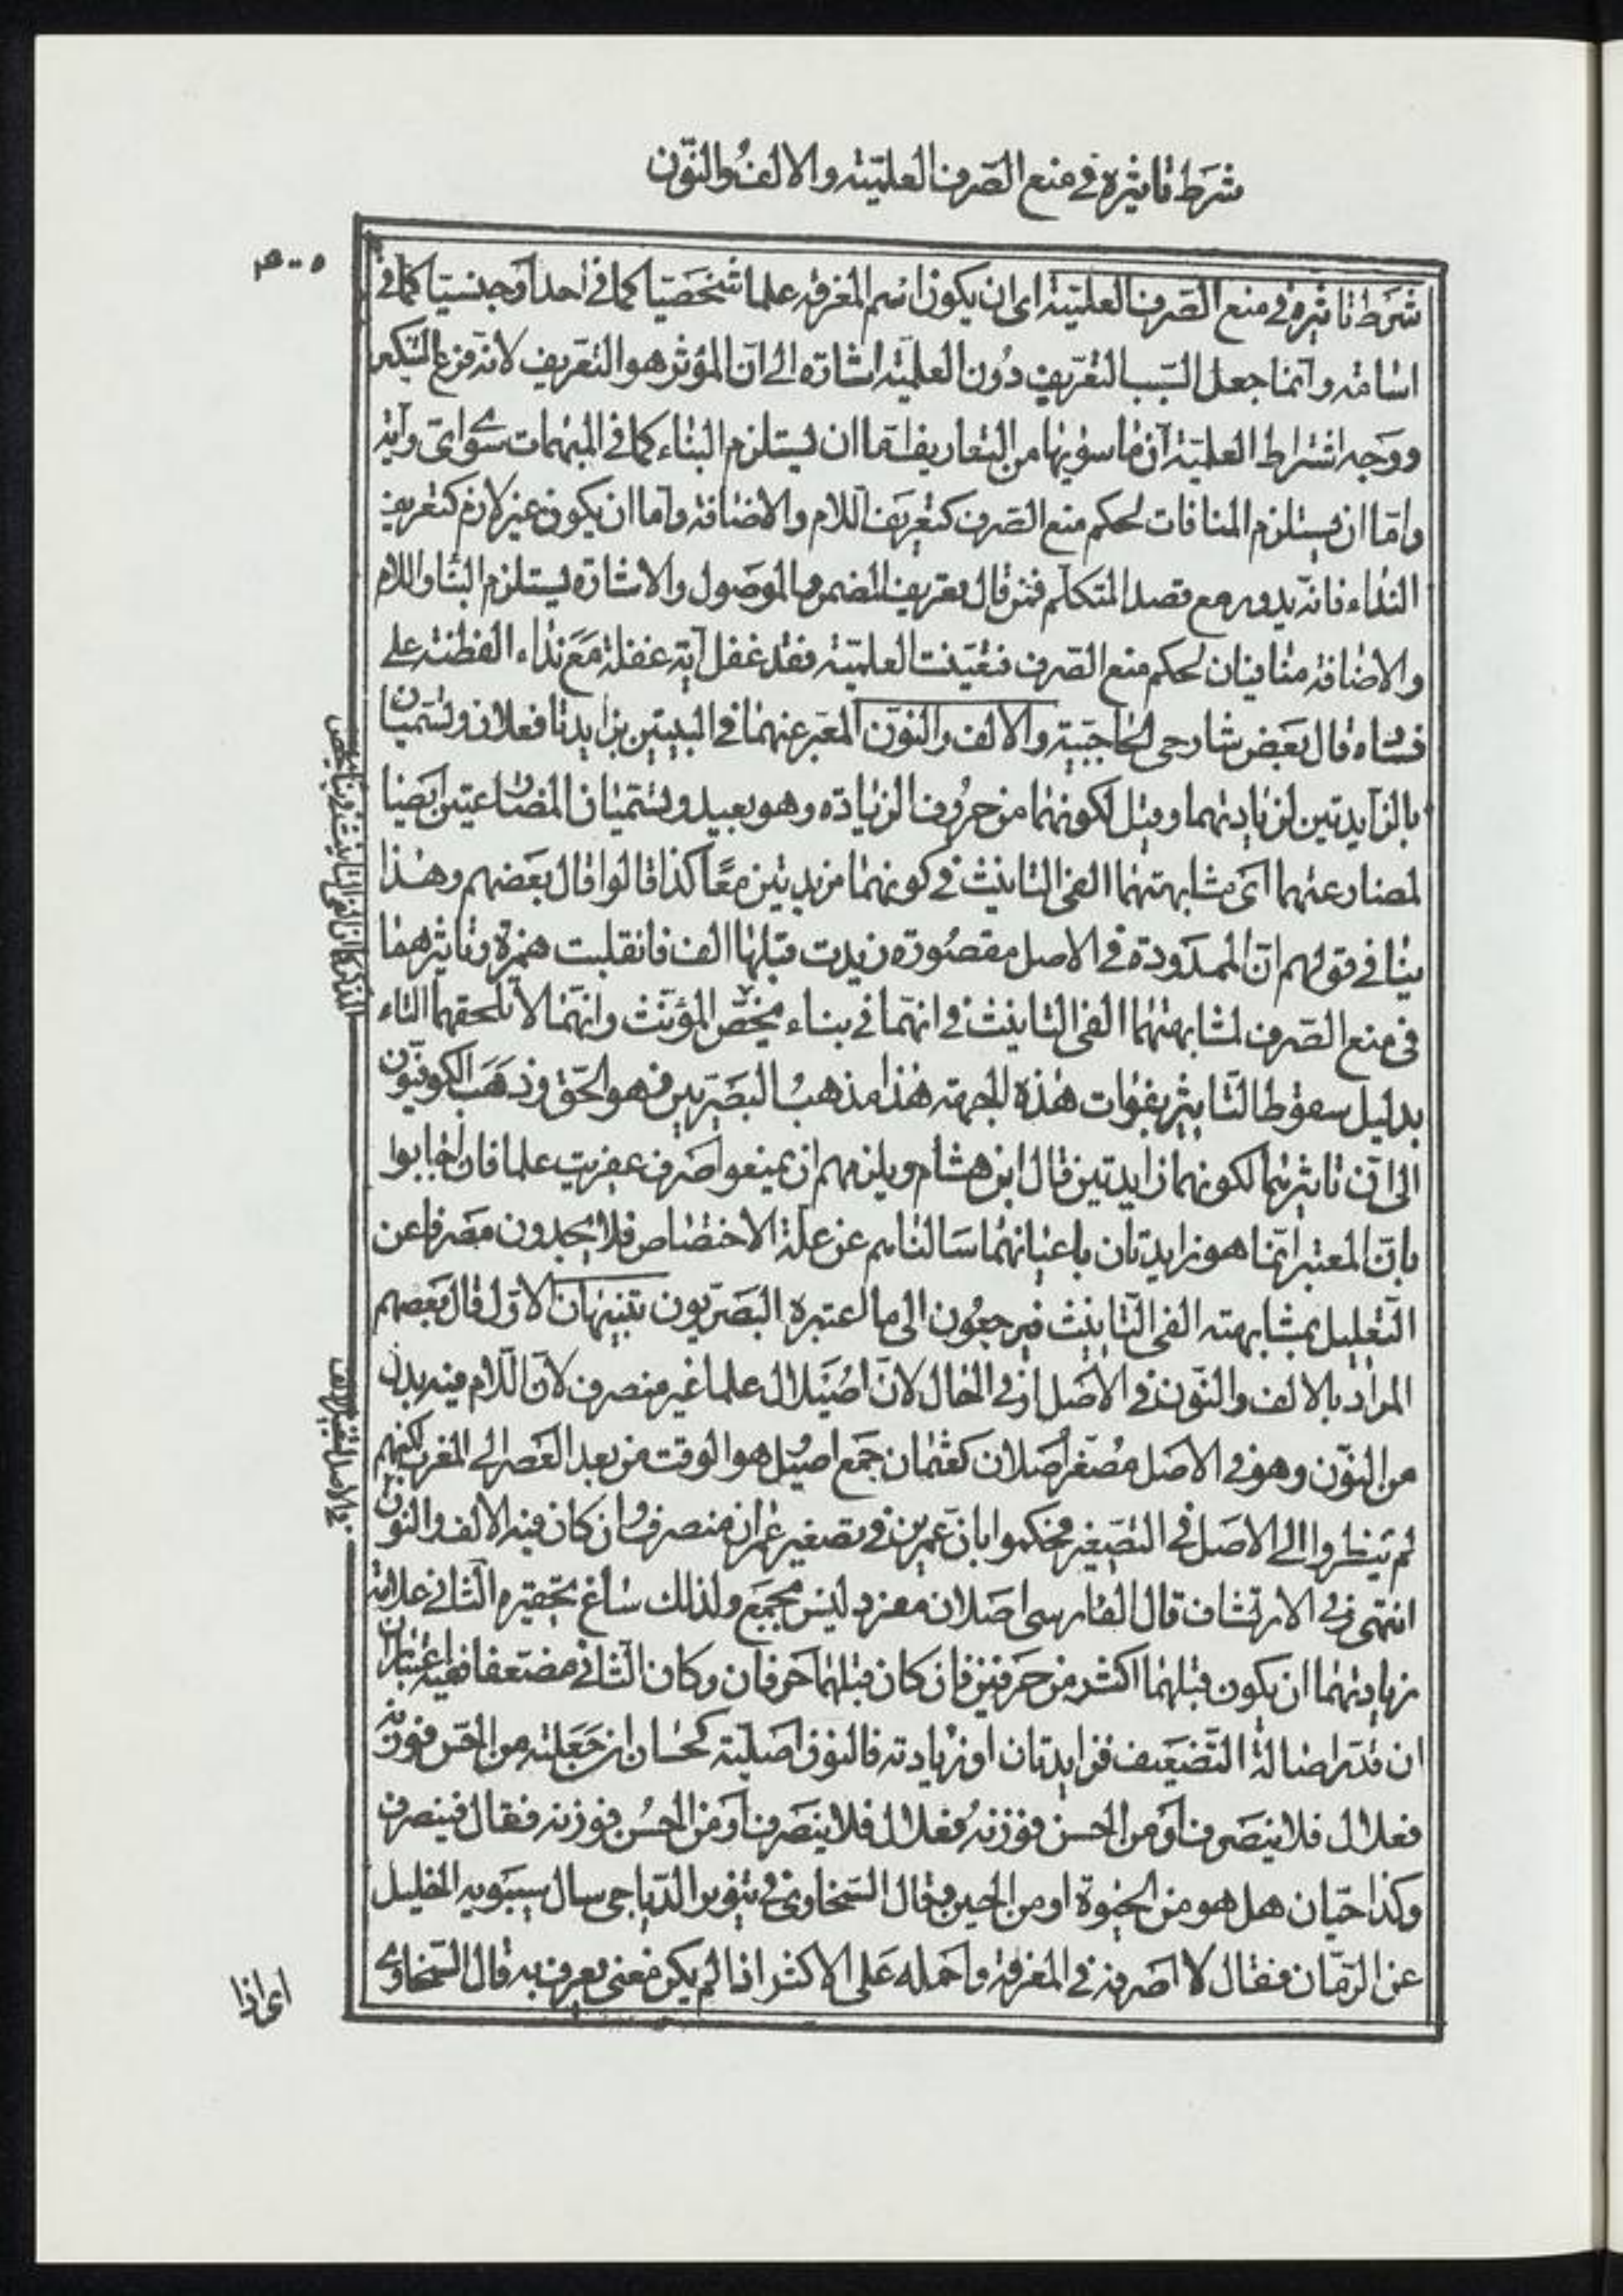 شرط تاثيره في منع الصرف العلميّة والالف والنّون
شرط تاثيره في منع الصّرف العلميّة اى ان يكون اسم المعرفة علما شخصيا كما في احد او جنسيا كما في
اسامة وانما جعل السّبب التعريف دون العلميّة اشارة الى انّ المؤثر هو التعريف لانه فرع التنكير
ووجه اشتراط العلمية انّ ما سويها من التعاريف امّا ان يستلزم البناء كما في المبهمات سوى اىّ وايّة
وامّا ان يستلزم المنافات لحكم منع الصرف كتعريف اللام والاضافة وامّا ان يكون غير لازم كتعريف
النداء فانّه يدور مع قصد المتكلّم فمن قال تعريف المضمر والموصول والاشارة يستلزم البناء واللام
والاضافة منافيان لحكم منع الصّرف فتعيّنت العلميّة فقد غفل ايّة غفلة مع نداء الفطنة على
قال بعض شارحى الحاجبيّة والالف والنّون المعبّر عنهما في البيتين بزايدتا فعلان ويسمّيان
بالزّايدتين لزيادتهما وقيل لكونهما من حروف الزيادة وهو بعيد ويسمّيان المضارعتين ايضا
لمضارعتهما اى مشابهتهما الفى التانيث في كونهما مزيدتين معًا كذا قالوا قال بعضهم وهذا
ينافى قولهم انّ الممدودة في الاصل مقصورة زيدت قبلها الف فانقلبت همزة وتاثيرهما
فى منع الصّرف لمشابهتهما الفى التانيث في انهما في بناء يخصّ المؤنّث وانّهما لا تلحقهما التاء
بدليل سقوط التّاثير بفوات هذه الجهة هذا مذهب البصريين فهو الحق وذهب الكوفيّون
الى انّ تاثيرهما لكونهما زايدتين قال ابن هشام ويلزمهم ان يمنعوا صرف عفريت علما فان اجابوا
بانّ المعتبر انّما هو زايدتان باعيانهما سالناهم عن علّة الاختصاص فلا يجدون مصرفا عن
التّعليل بمشابهة الفى التّانيث فيرجعون الى ما اعتبره البصريون تنبيهان الاوّل قال بعضهم
المراد بالالف والنّون في الاصل او في الحال لانّ اصيلال علما غير منصرف لانّ اللام فيه بدل
من النّون وهو في الاصل مصغّر اصلان كعثمان جمع اصيل هو الوقت من بعد العصر الى المغرب لكنهم
لم ينظروا الى الاصل في التصغير فحكموا بانّ عميرين في تصغير عمران منصرف وان كان فيه الالف والنون
انتهى وفى الارتشاف قال الفارسى اصلان مفرد ليس بجمع ولذلك ساغ تحقيره الثانى علامة
زيادتهما ان يكون قبلهما اكثر من حرفين فان كان قبلهما حرفان وكان الثانى مضعفا ففيه اعتباران
ان قدّر اصالة التّضعيف فزايدتان او زيادته فالنون اصليّة كحسان ان جعلته من الحسّ فوزنه
فعلان فلا ينصرف او من الحسن فوزنه فعّال فينصرف
وكذا حيّان هل هو من الحيٰوة او من الحين وقال السّخاوى في تنوير الدّياجى سال سيبويه الخليل
عن الرّمّان فقال لا اصرفه في المعرفة واحمله على الاكثر اذا لم يكن معنى يعرف به قال السّخاوى
اى اذا